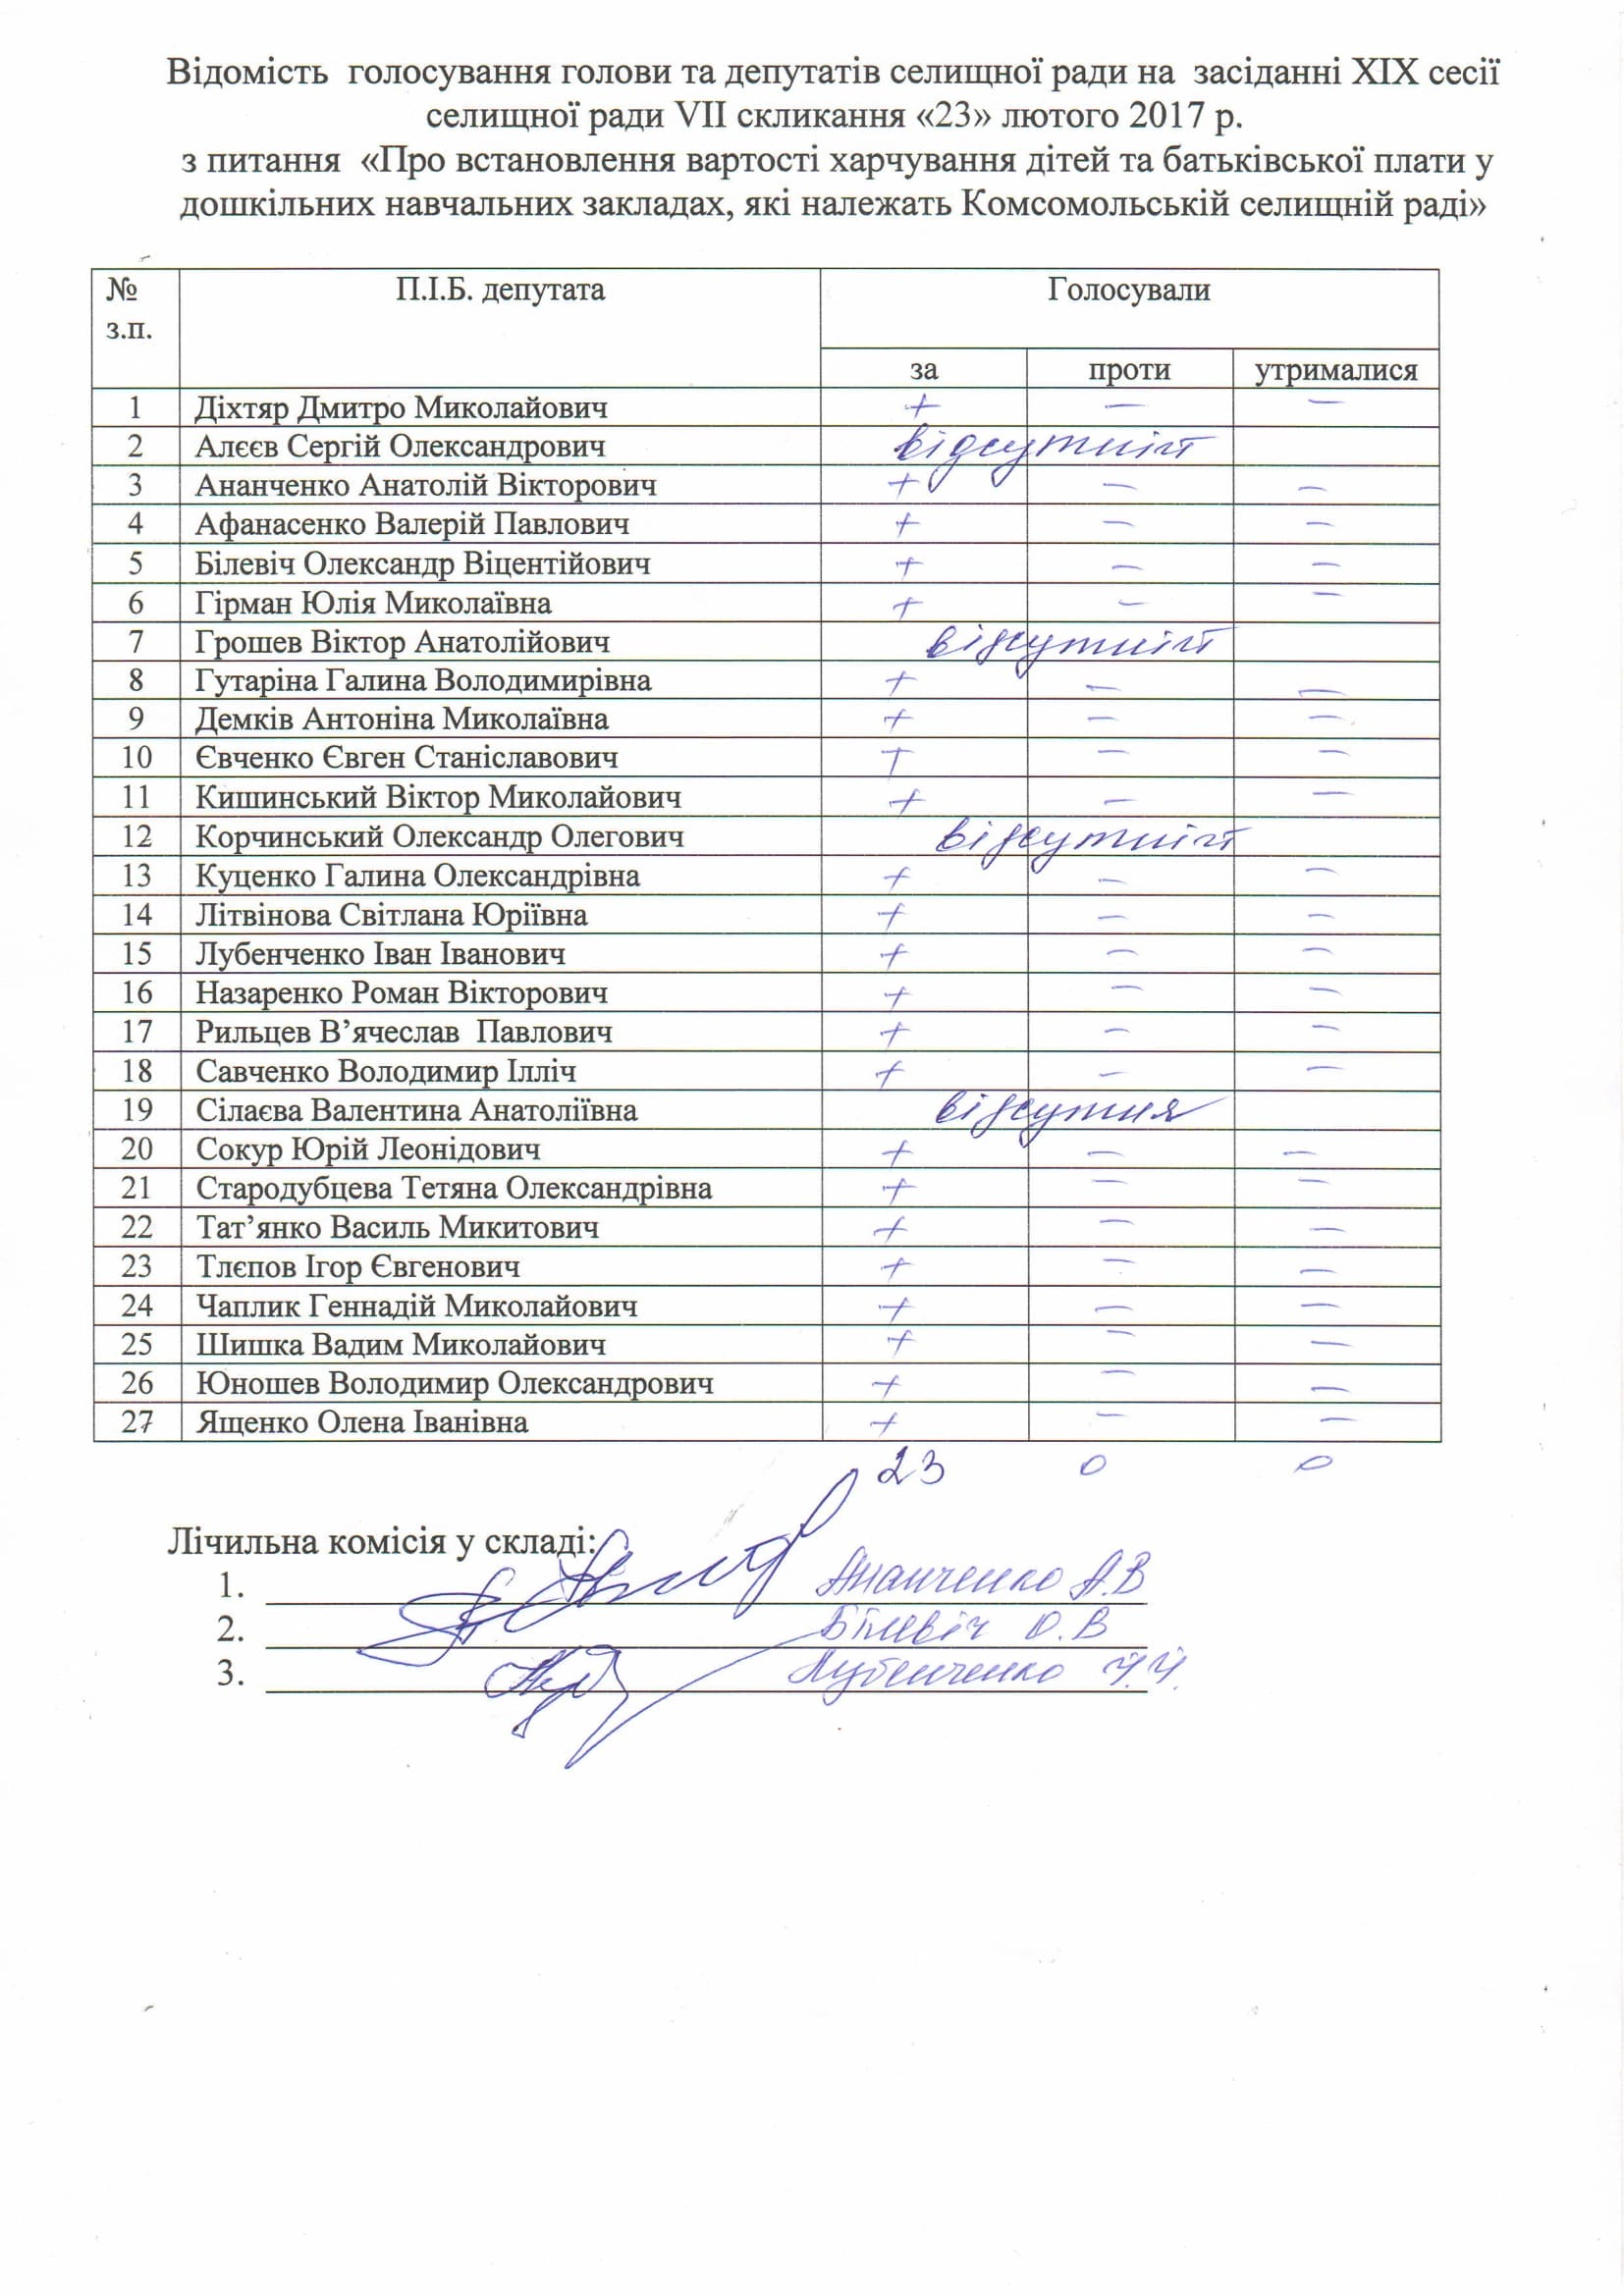 Відомість голосування голови та депутатів селищної ради на засіданні XIX сесії
селищної ради VII скликання «23» лютого 2017 р.
з питання «Про встановлення вартості харчування дітей та батьківської плати у
дошкільних навчальних закладах, які належать Комсомольській селищній раді»
№ з.п. П.І.Б. депутата Голосували
за проти утрималися
1 Діхтяр Дмитро Миколайович + – –
2 Алєєв Сергій Олександрович відсутній
3 Ананченко Анатолій Вікторович + – –
4 Афанасенко Валерій Павлович + – –
5 Білевіч Олександр Віцентійович + – –
6 Гірман Юлія Миколаївна + – –
7 Грошев Віктор Анатолійович відсутній
8 Гутаріна Галина Володимирівна + – –
9 Демків Антоніна Миколаївна + – –
10 Євченко Євген Станіславович + – –
11 Кишинський Віктор Миколайович + – –
12 Корчинський Олександр Олегович відсутній
13 Куценко Галина Олександрівна + – –
14 Літвінова Світлана Юріївна + – –
15 Лубенченко Іван Іванович + – –
16 Назаренко Роман Вікторович + – –
17 Рильцев В’ячеслав Павлович + – –
18 Савченко Володимир Ілліч + – –
19 Сілаєва Валентина Анатоліївна відсутня
20 Сокур Юрій Леонідович + – –
21 Стародубцева Тетяна Олександрівна + – –
22 Тат’янко Василь Микитович + – –
23 Тлєпов Ігор Євгенович + – –
24 Чаплик Геннадій Миколайович + – –
25 Шишка Вадим Миколайович + – –
26 Юношев Володимир Олександрович + – –
27 Ященко Олена Іванівна + – –
23 0 0
Лічильна комісія у складі:
1. Ананченко А.В
2. Білевіч О.В
3. Лубенченко І.І.